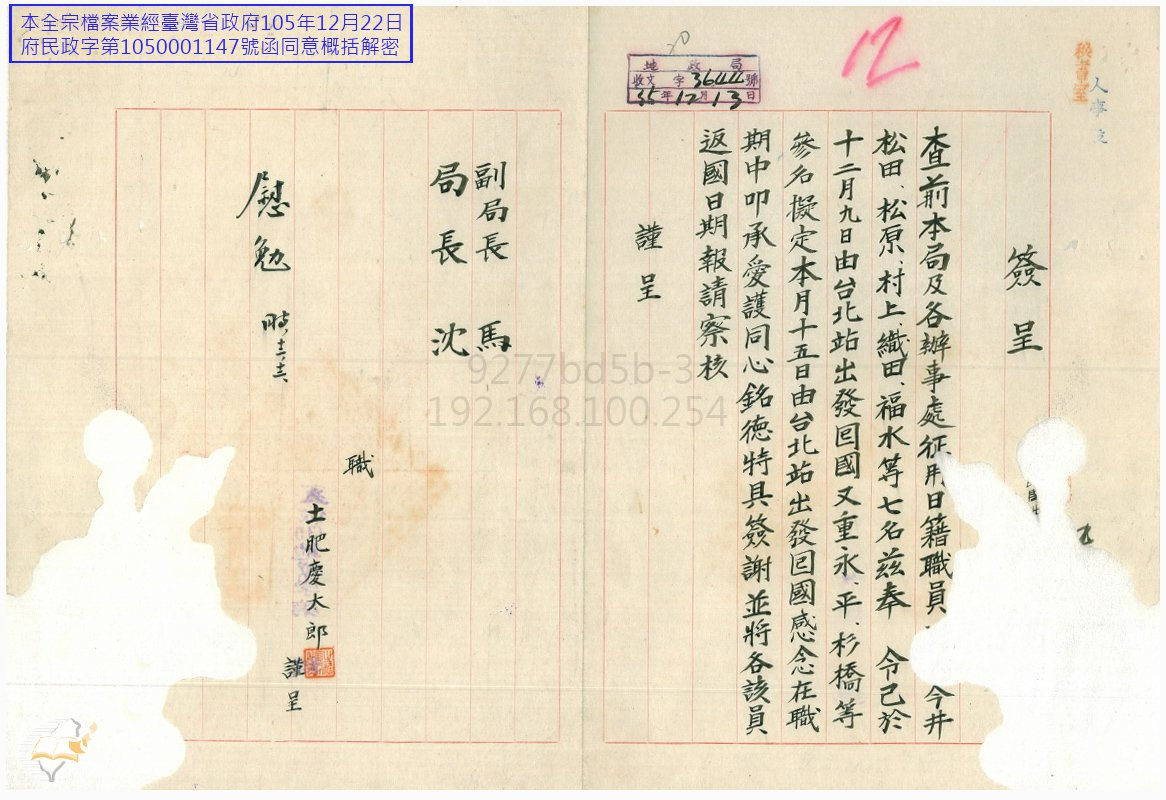 本全宗檔案業經臺灣省政府105年12月22日
府民政字第1050001147號函同意概括解密
20
地政局
收文 字3644號
35年12月13日
12
秘書室
人事
簽呈
查前本局及各辦事處征用日籍職員 今井
松田、松原、村上、織田、福水等七名茲奉 令已於
十二月九日由台北站出發回國又重永、平、杉橋等
參名擬定本月十五日由台北站出發回國感念在職
期中叩承愛護同心銘德特具簽謝並將各該員
返國日期報請察核
謹呈
副局長 馬
局長 沈
慰勉
職
土肥慶太郎
謹呈
9277bd5b-3
192.168.100.254